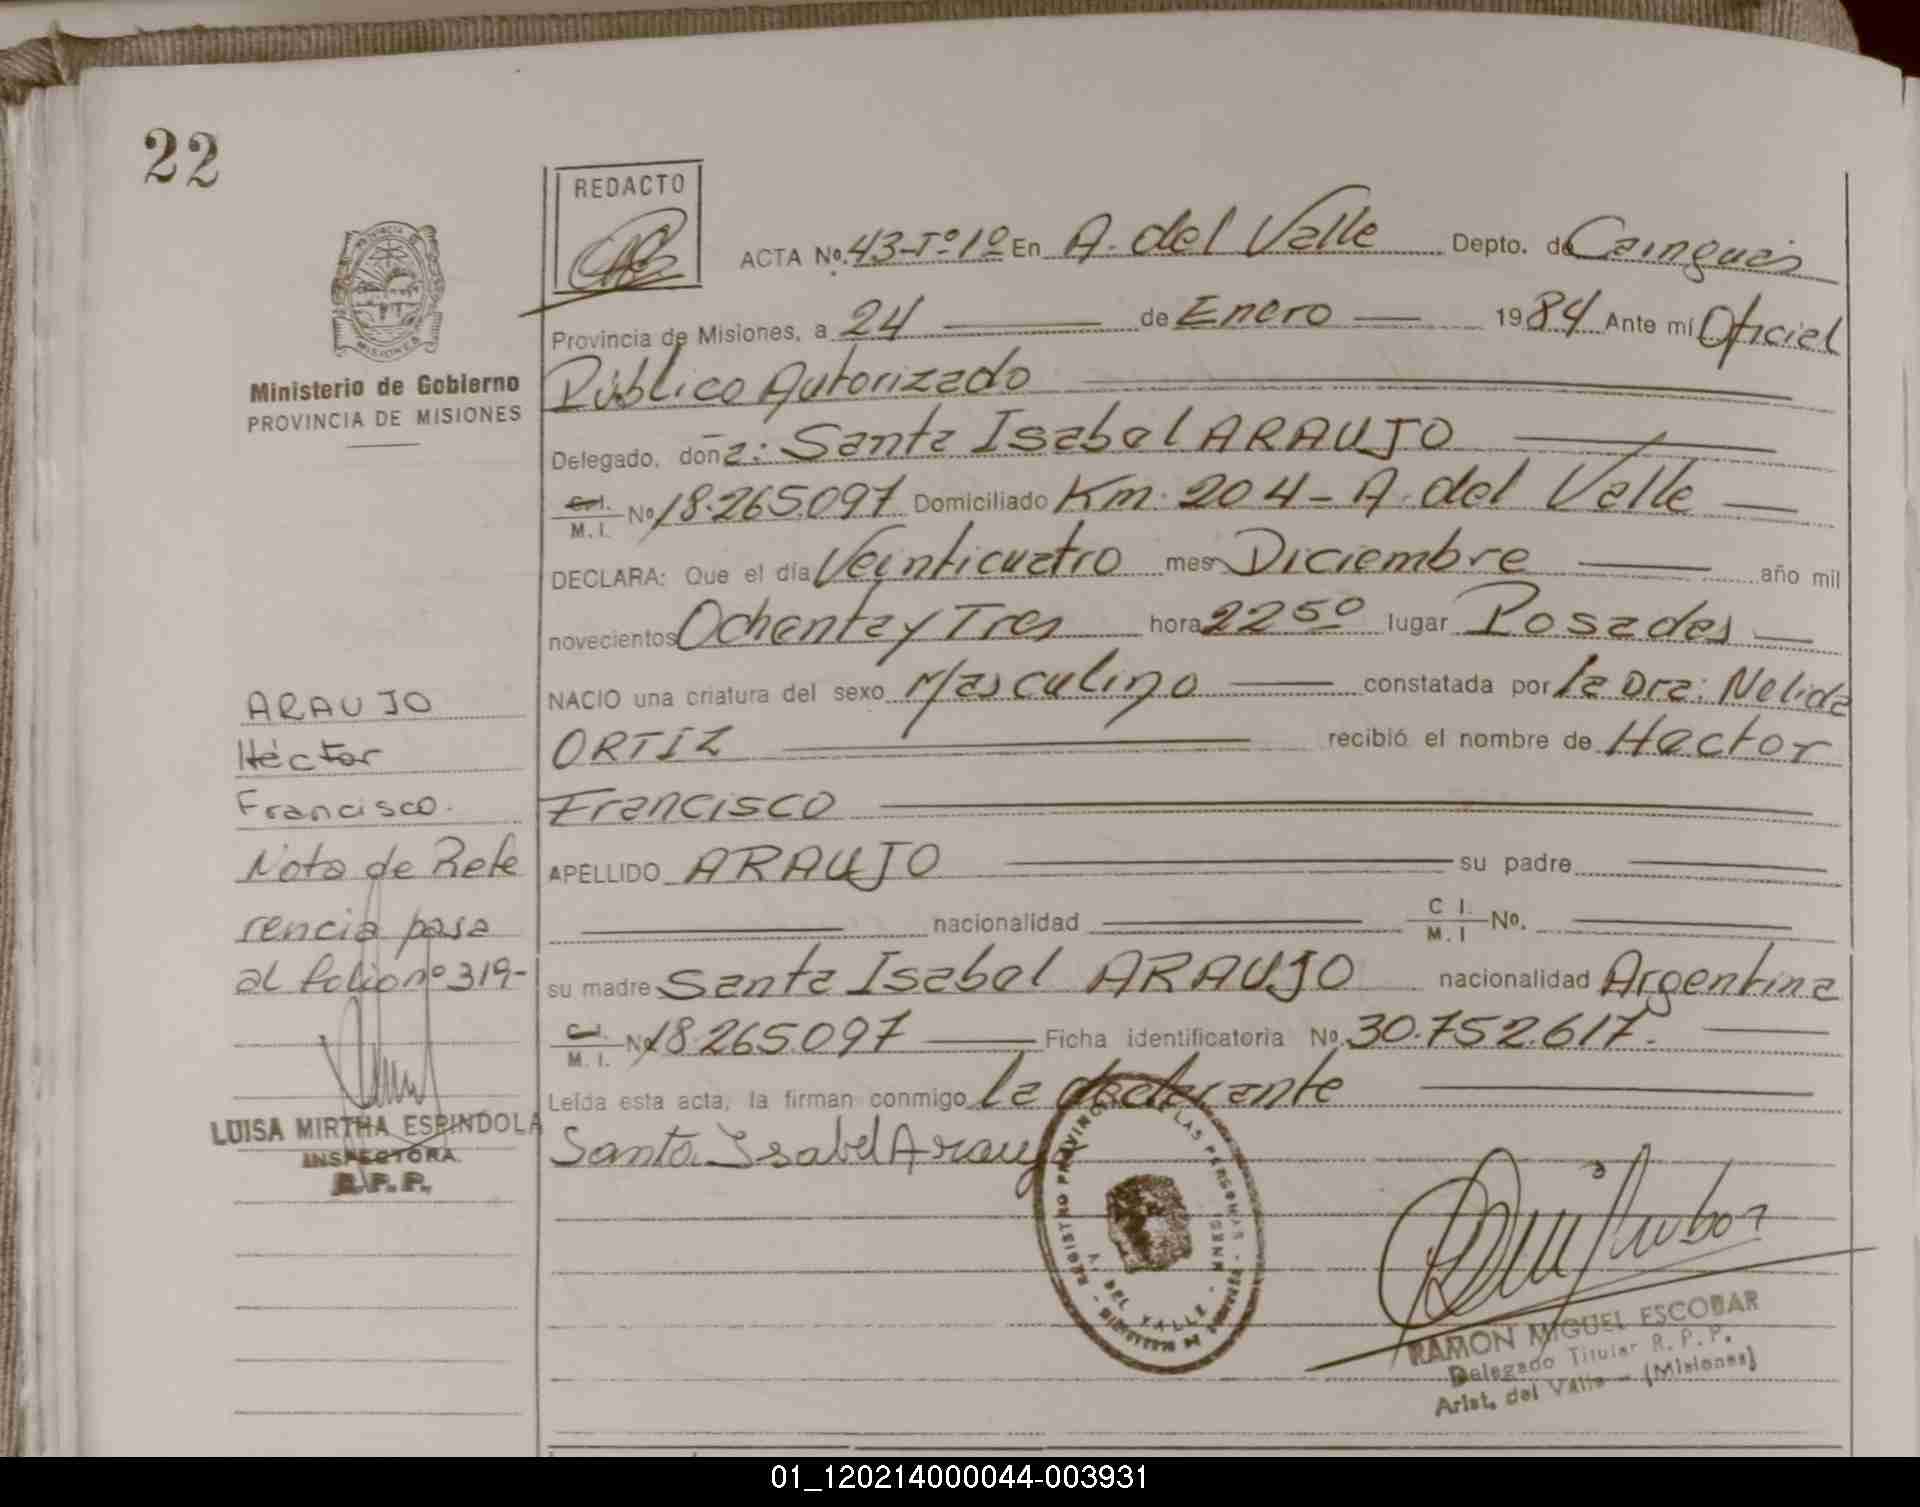 22
REDACTO
ACTA No. 43-Tº1º En A. del Valle Depto. de Cainguás
Provincia de Misiones, a 24 de Enero 1984 Ante mí Oficial
Público Autorizado
Delegado, doña: Santa Isabel ARAUJO
C.I. M.I. No 18.265.097 Domiciliado Km. 204 - A. del Valle
DECLARA: Que el día Veinticuatro mes Diciembre año mil
novecientos Ochenta y Tres hora 22 50 lugar Posadas
NACIO una criatura del sexo Masculino constatada por la Dra: Nelida
ORTIZ recibió el nombre de Hector
Francisco
APELLIDO ARAUJO su padre
nacionalidad C I. M. I No.
su madre Santa Isabel ARAUJO nacionalidad Argentina
C.I. M. I. No 18.265.097 Ficha identificatoria No. 30.752.617.
Leída esta acta, la firman conmigo la declarante
Santa Isabel Araujo
PROVINCIA DE MISIONES
Ministerio de Gobierno
PROVINCIA DE MISIONES
ARAUJO
Héctor
Francisco.
Nota de Refe
rencia pasa
al folio nº 319-
LUISA MIRTHA ESPINDOLA
INSPECTORA
R.P.P.
REGISTRO PROVINCIAL DE LAS PERSONAS
A. DEL VALLE - MNES
RAMON MIGUEL ESCOBAR
Delegado Titular R. P. P.
Arist. del Valle - (Misiones)
01_120214000044-003931